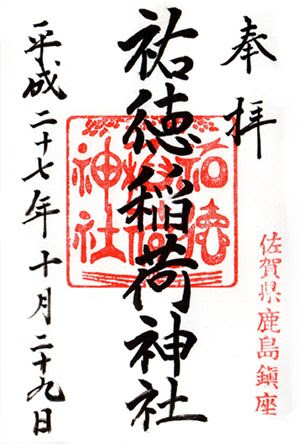 奉拝
佐賀県鹿島鎮座
祐徳稲荷神社
祐徳稲荷神社
平成二十七年十月二十九日